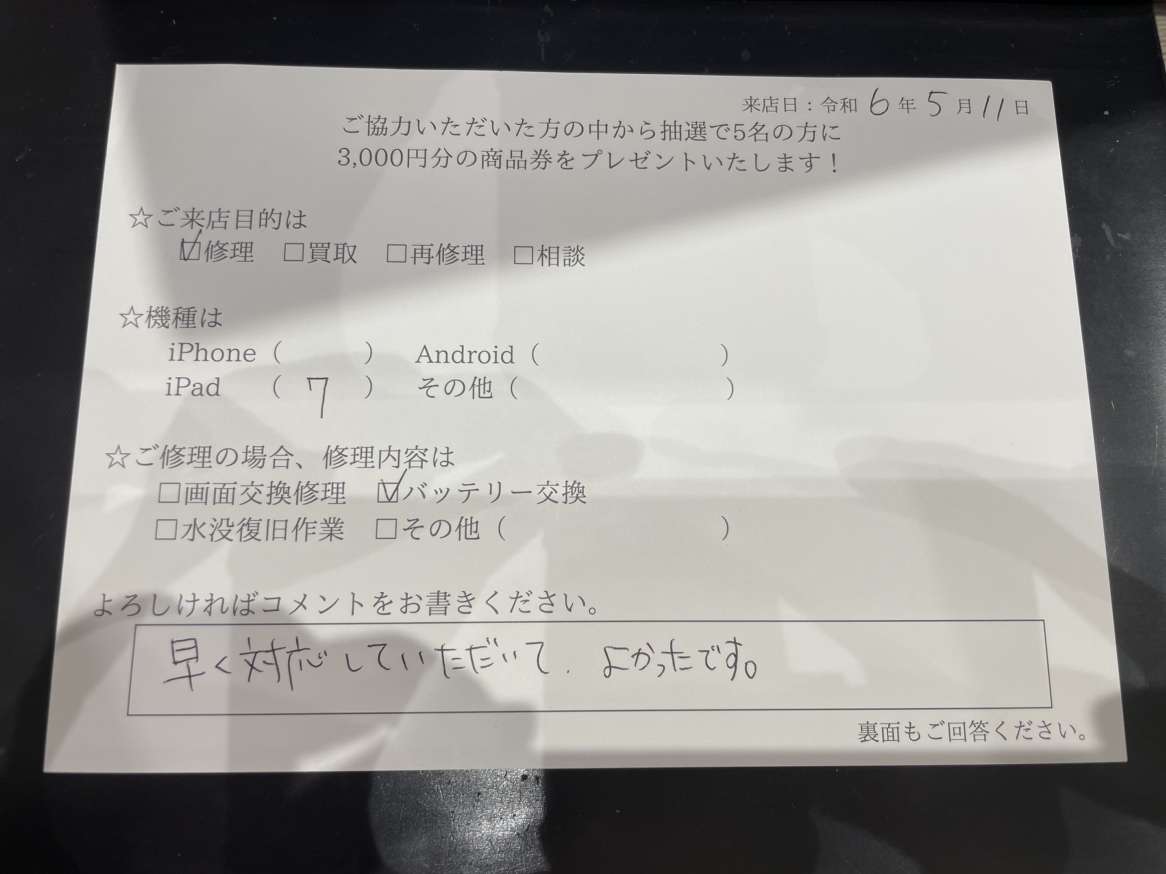 来店日：令和 6 年 5 月 11 日
ご協力いただいた方の中から抽選で5名の方に
3,000円分の商品券をプレゼントいたします！
☆ご来店目的は
☑修理 □買取 □再修理 □相談
☆機種は
iPhone（ ） Android（ ）
iPad （ 7 ） その他（ ）
☆ご修理の場合、修理内容は
□画面交換修理 ☑バッテリー交換
□水没復旧作業 □その他（ ）
よろしければコメントをお書きください。
早く対応していただいて、よかったです。
裏面もご回答ください。